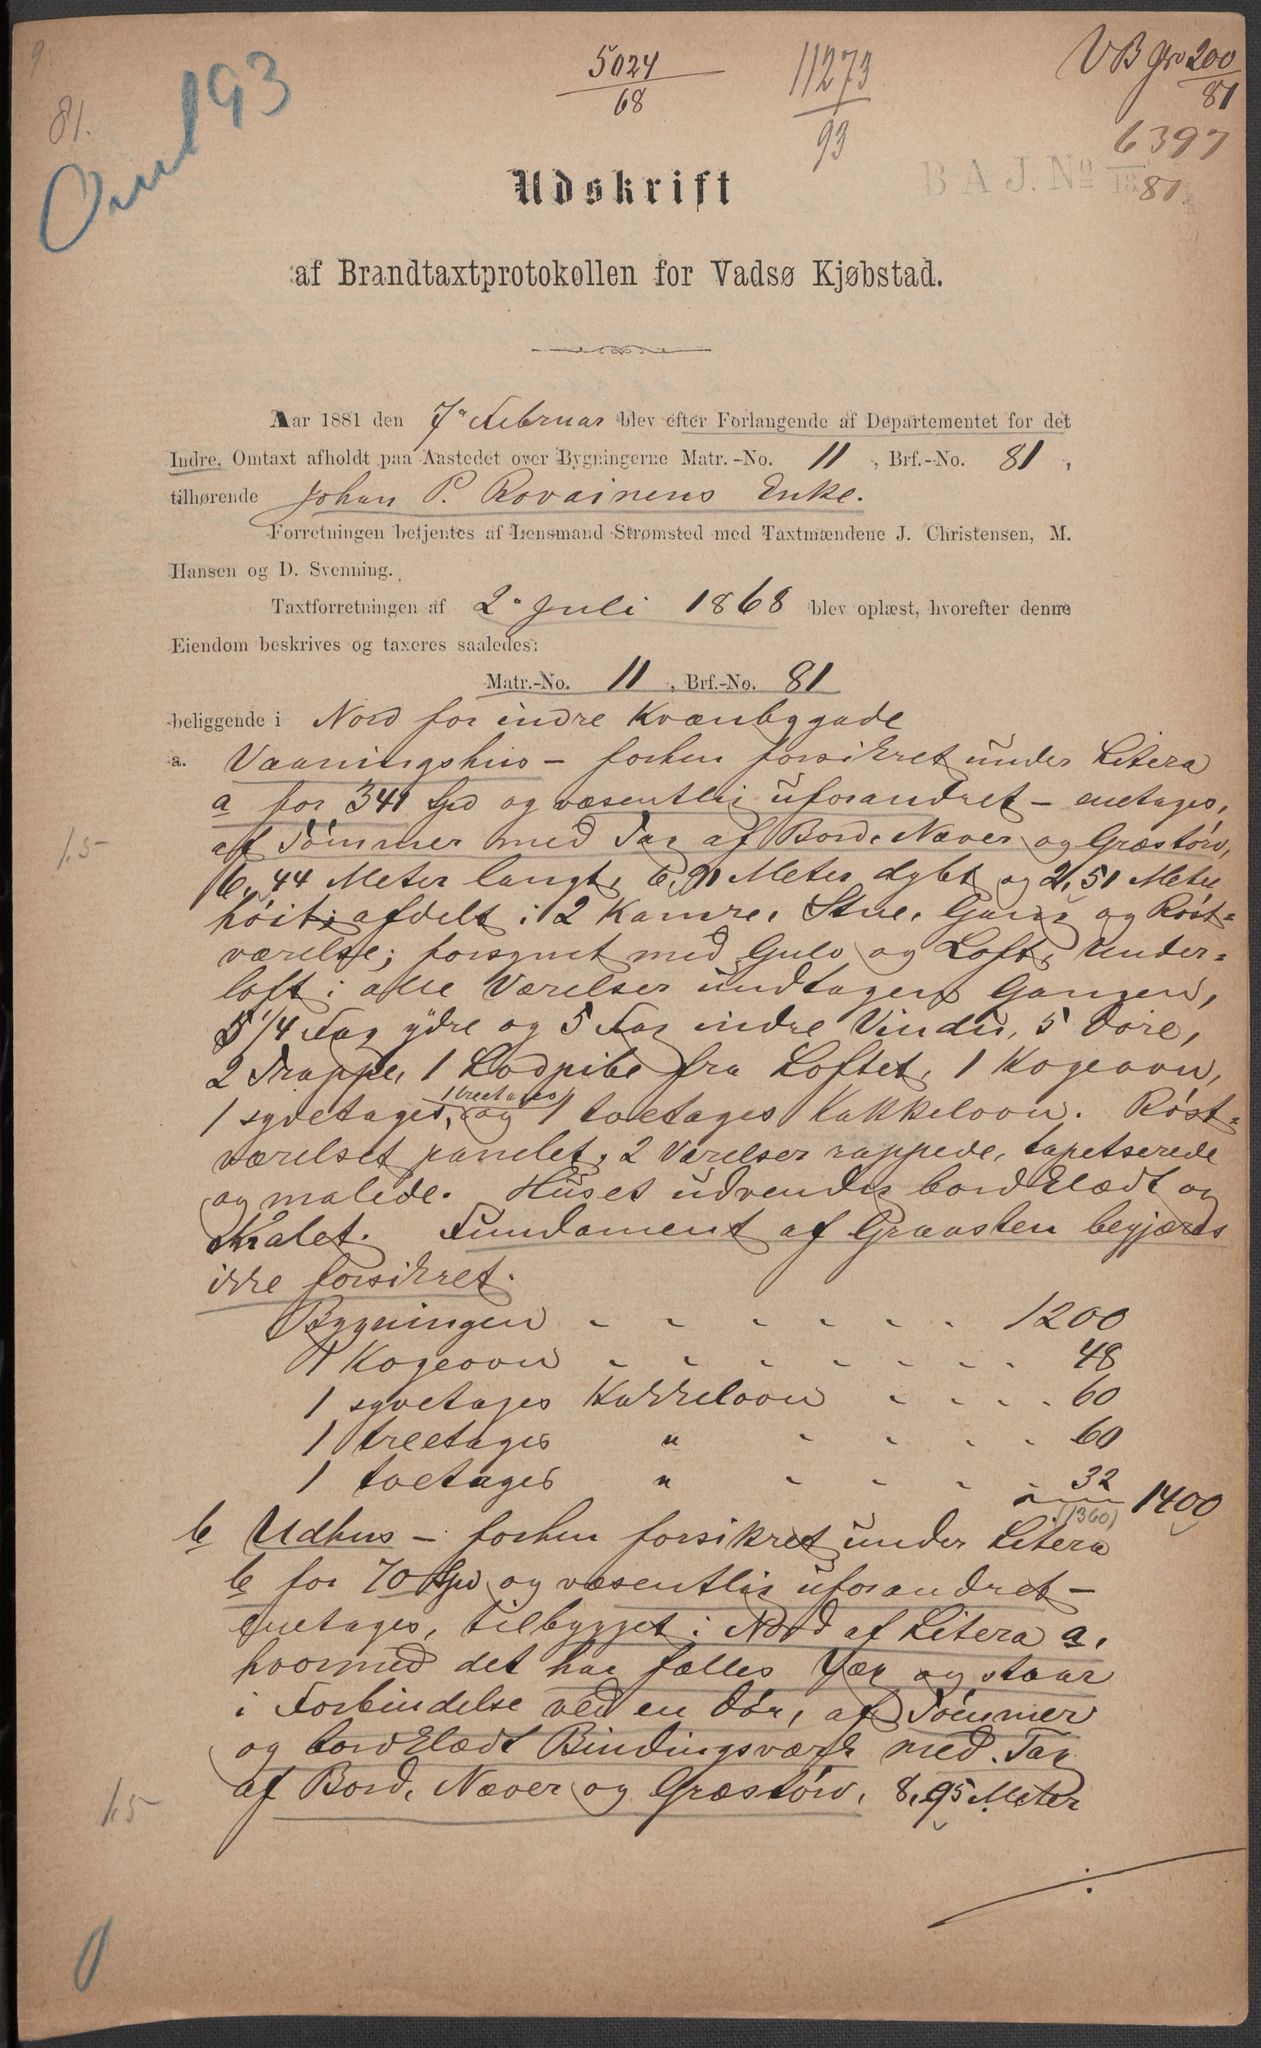 9
81.
Oml 93
5024
68
11273
93
VB Jro 200
81
6397
B A J. No 18 81
Udskrift
af Brandtaxtprotokollen for Vadsø Kjøbstad.
Aar 1881 den 7de Februar blev efter Forlangende af Departementet for det
Indre, Omtaxt afholdt paa Aastedet over Bygningerne Matr.-No. 11, Brf.-No. 81,
tilhørende Johan P. Rovainens Enke.
Forretningen betjentes af Lensmand Strømsted med Taxtmændene J. Christensen, M.
Hansen og D. Svenning.
Taxtforretningen af 2den Juli 1868 blev oplæst, hvorefter denne
Eiendom beskrives og taxeres saaledes:
Matr.-No. 11, Brf.-No. 81
beliggende i Nord for indre Kvænbygade
a. Vaaningshus – forhen forsikret under Litera
a for 341 Spd og væsentlig uforandret – enetages,
af Tømmer med Tag af Bord, Næver og Græstørv,
16,44 Meter langt, 6,91 Meter dybt og 2,51 Meter
høit; afdelt i 2 Kamre, Stue, Gang og Røst-
værelse; forsynet med Gulv og Loft, Under-
loft i alle Værelser undtagen Gangen,
5 1/4 Fag ydre og 5 Fag indre Vindu, 5 Døre,
2 Trappe, 1 Lodpibe fra Loftet, 1 Kogeovn,
1 treetages
1 syvetages, og 1 toetages Kakkelovn. Røst-
værelset panelet, 2 Værelser rappede, tapetserede
og malede. Huset udvendig bordklædt og
malet. Fundament af Graasten begjæres
ikke forsikret.
Bygningen 1200
1 Kogeovn 48
1 syvetages Kakkelovn 60
1 treetages " 60
1 toetages " 32
1400
(1360)
b Udhus – forhen forsikret under Litera
b for 70 Spd og væsentlig uforandret –
enetages, tilbygget i Nord af Litera a,
hvormed det har fælles Væg og staar
i Forbindelse ved en Dør, af Tømmer
og bordklædt Bindingsværk med Tag
af Bord, Næver og Græstørv, 8,95 Meter
1.5
1.5